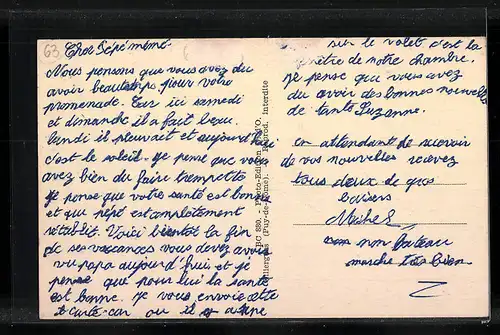 63
Cher Pépé mémé
Nous pensons que vous avez du
avoir beau temps pour votre
promenade. Car ici samedi
et dimanche il a fait beau.
lundi il pleuvait et aujourd'hui
c'est le soleil. Je pense que vous
avez bien du faire trempette
Je pense que votre santé est bonne
et que pépé est complètement
rétablit. Voici bientôt la fin
de ses vacances vous devez avoir
vu papa aujourd'hui et je
pense que pour lui la santé
est bonne. Je vous envoie cette
carte car ou il y a une
sur le volet c'est la
notre de notre chambre.
Je pense que vous avez
du avoir des bonnes nouvelles
de tante Suzanne.
en attendant de recevoir
de vos nouvelles recevez
tous deux de gros
baisers
Michel
mon bateau
marche très bien
Photo-Edition
(Puy-de-Dôme). Reprod. interdite